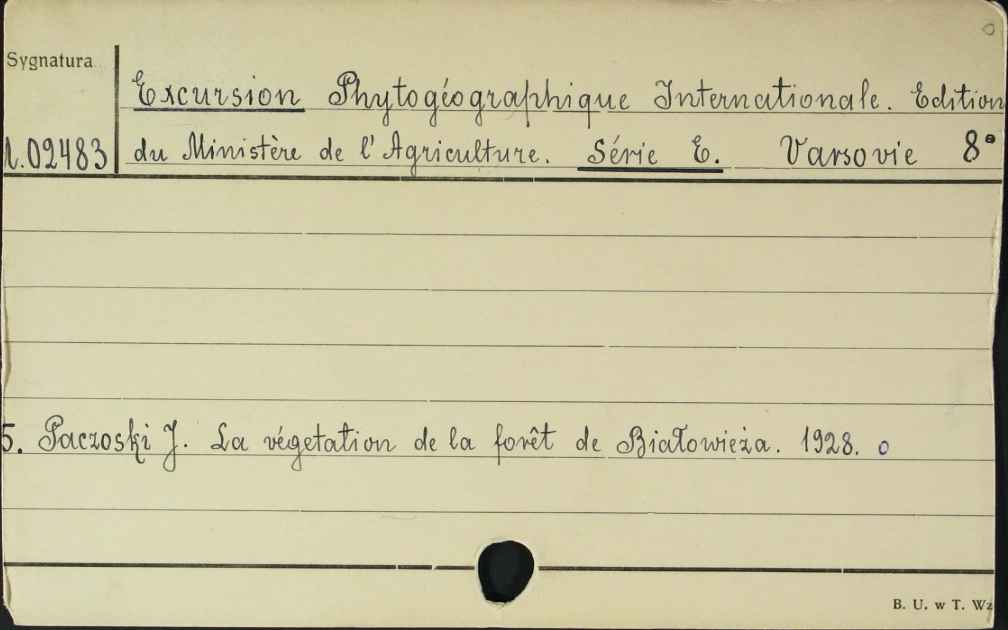 Sygnatura
Excursion Phytogéographique Internationale. Edition
02483 du Ministère de l'Agriculture. Série E. Varsovie 8°
5. Paczoski J. La végetation de la forêt de Białowieża. 1928. o
B. U. w T. Wz